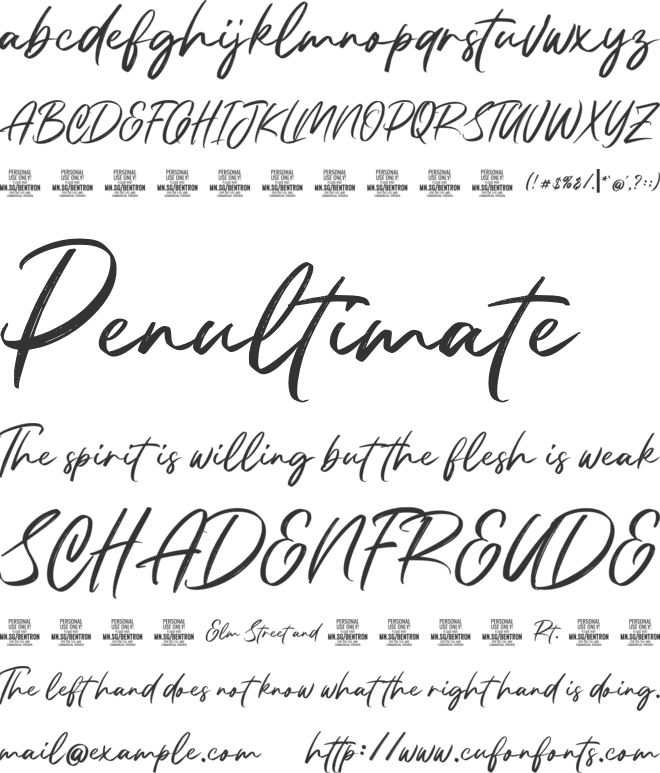 abcdefghijklmnopqrstuvwxyz
ABCDEFGHIJKLMNOPQRSTUVWXYZ
PERSONAL PERSONAL PERSONAL PERSONAL PERSONAL PERSONAL PERSONAL PERSONAL PERSONAL PERSONAL
USE ONLY! USE ONLY! USE ONLY! USE ONLY! USE ONLY! USE ONLY! USE ONLY! USE ONLY! USE ONLY! USE ONLY!
MN.SG/BENTRON MN.SG/BENTRON MN.SG/BENTRON MN.SG/BENTRON MN.SG/BENTRON MN.SG/BENTRON MN.SG/BENTRON MN.SG/BENTRON MN.SG/BENTRON MN.SG/BENTRON (!#$%&/.|*`@´,?:;)
Penultimate
The spirit is willing but the flesh is weak
SCHADENFREUDE
PERSONAL PERSONAL PERSONAL PERSONAL PERSONAL PERSONAL PERSONAL PERSONAL PERSONAL PERSONAL
USE ONLY! USE ONLY! USE ONLY! USE ONLY! USE ONLY! USE ONLY! USE ONLY! USE ONLY! USE ONLY! USE ONLY!
MN.SG/BENTRON MN.SG/BENTRON MN.SG/BENTRON MN.SG/BENTRON Elm Street and MN.SG/BENTRON MN.SG/BENTRON MN.SG/BENTRON MN.SG/BENTRON Rt. MN.SG/BENTRON MN.SG/BENTRON
The left hand does not know what the right hand is doing.
mail@example.com http://www.cufonfonts.com